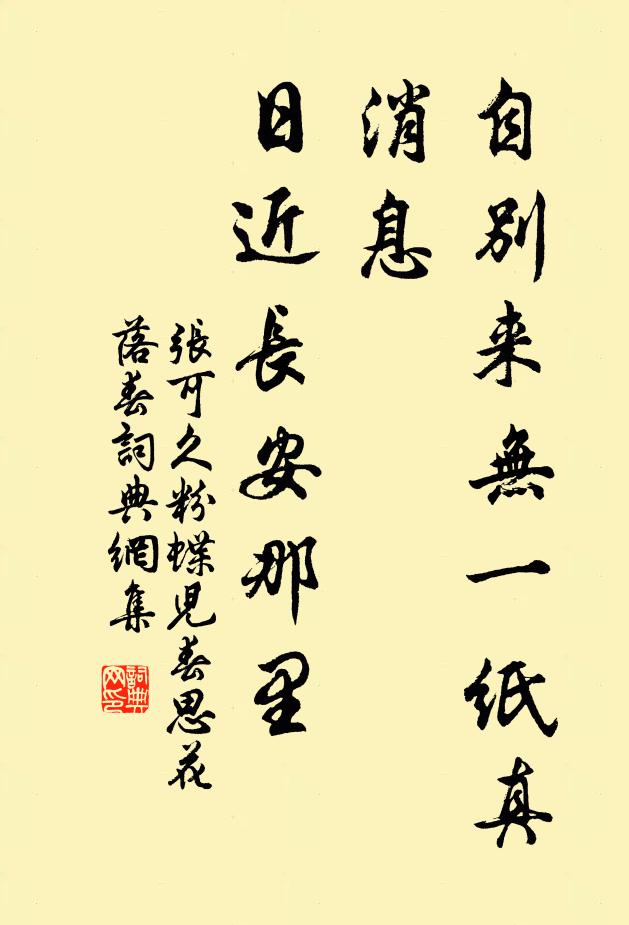 自别来無一紙真
消息
日近長安那里
張可久粉蝶児春思花
落春詞典網集
詞典
网印